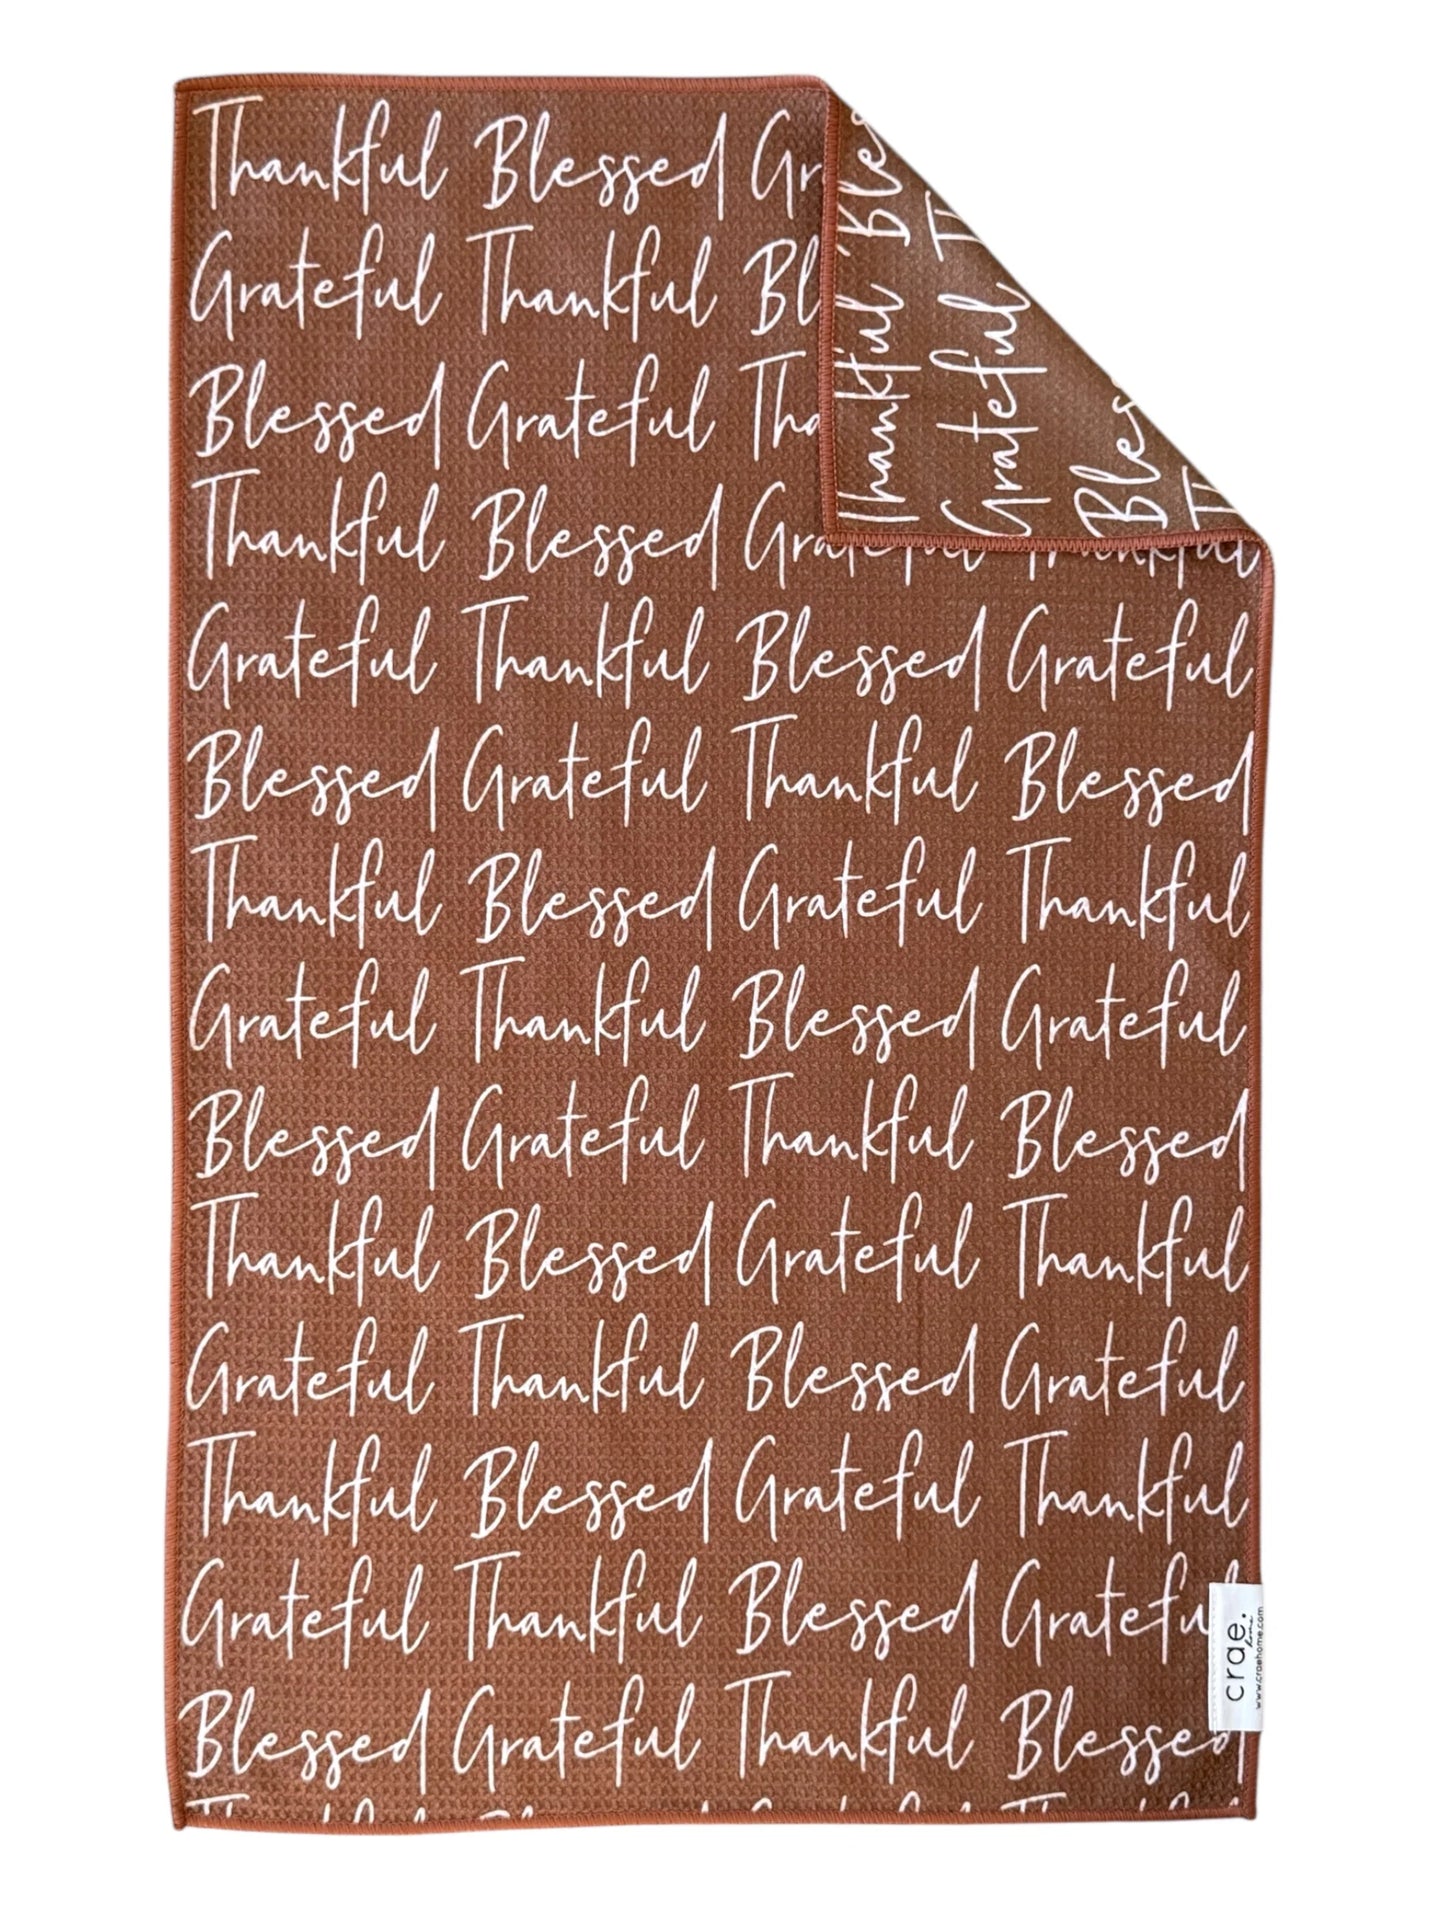 Thankful Blessed Gr
Grateful Thankful Bl
Blessed Grateful Tha
Thankful Blessed Grateful Thankful
Grateful Thankful Blessed Grateful
Blessed Grateful Thankful Blessed
Thankful Blessed Grateful Thankful
Grateful Thankful Blessed Grateful
Blessed Grateful Thankful Blessed
Thankful Blessed Grateful Thankful
Grateful Thankful Blessed Grateful
Thankful Blessed Grateful Thankful
Grateful Thankful Blessed Grateful
Blessed Grateful Thankful Blessed
Thankful Bles
Grateful Th
Bles
Th
crae.
home
www.craehome.com